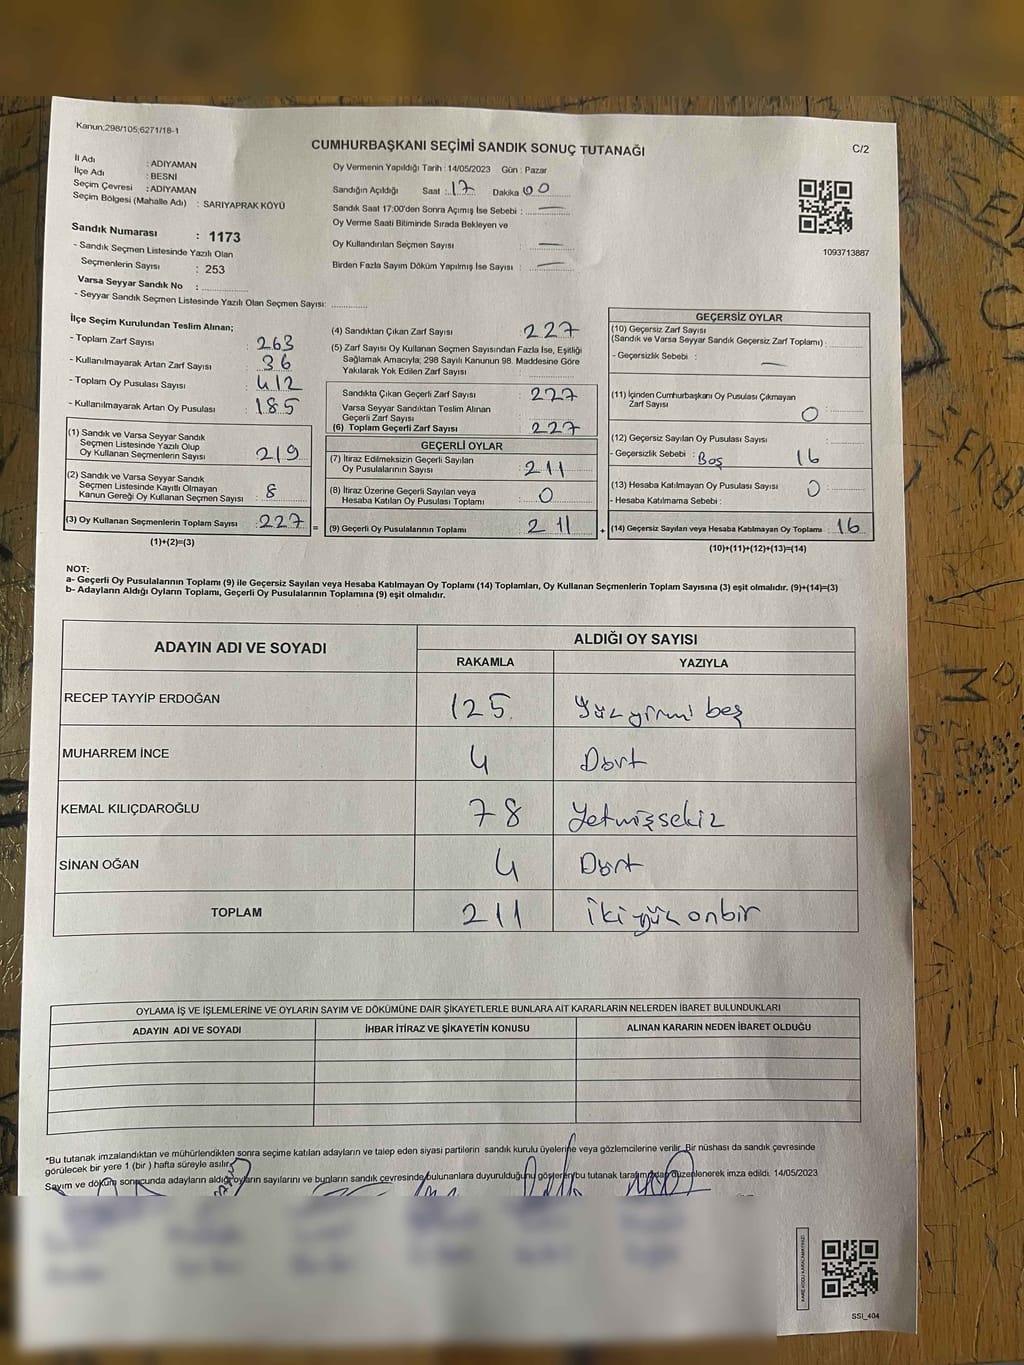 Kanun;298/105;6271/18-1
CUMHURBAŞKANI SEÇİMİ SANDIK SONUÇ TUTANAĞI
C/2
İl Adı : ADIYAMAN
İlçe Adı : BESNİ
Seçim Çevresi : ADIYAMAN
Seçim Bölgesi (Mahalle Adı) : SARIYAPRAK KÖYÜ
Sandık Numarası : 1173
- Sandık Seçmen Listesinde Yazılı Olan
Seçmenlerin Sayısı : 253
Varsa Seyyar Sandık No :
- Seyyar Sandık Seçmen Listesinde Yazılı Olan Seçmen Sayısı:
Oy Vermenin Yapıldığı Tarih : 14/05/2023 Gün : Pazar
Sandığın Açıldığı Saat : 17 Dakika 00
Sandık Saat 17:00'den Sonra Açımış İse Sebebi : —
Oy Verme Saati Bitiminde Sırada Bekleyen ve
Oy Kullandırılan Seçmen Sayısı : —
Birden Fazla Sayım Döküm Yapılmış İse Sayısı : —
1093713887
İlçe Seçim Kurulundan Teslim Alınan;
- Toplam Zarf Sayısı : 263
- Kullanılmayarak Artan Zarf Sayısı : 36
- Toplam Oy Pusulası Sayısı : 412
- Kullanılmayarak Artan Oy Pusulası : 185
(1) Sandık ve Varsa Seyyar Sandık
Seçmen Listesinde Yazılı Olup
Oy Kullanan Seçmenlerin Sayısı : 219
(2) Sandık ve Varsa Seyyar Sandık
Seçmen Listesinde Kayıtlı Olmayan
Kanun Gereği Oy Kullanan Seçmen Sayısı : 8
(3) Oy Kullanan Seçmenlerin Toplam Sayısı : 227 =
(1)+(2)=(3)
(4) Sandıktan Çıkan Zarf Sayısı : 227
(5) Zarf Sayısı Oy Kullanan Seçmen Sayısından Fazla İse, Eşitliği
Sağlamak Amacıyla; 298 Sayılı Kanunun 98. Maddesine Göre
Yakılarak Yok Edilen Zarf Sayısı :
Sandıkta Çıkan Geçerli Zarf Sayısı : 227
Varsa Seyyar Sandıktan Teslim Alınan
Geçerli Zarf Sayısı :
(6) Toplam Geçerli Zarf Sayısı : 227
GEÇERLİ OYLAR
(7) İtiraz Edilmeksizin Geçerli Sayılan
Oy Pusulalarının Sayısı : 211
(8) İtiraz Üzerine Geçerli Sayılan veya
Hesaba Katılan Oy Pusulası Toplamı : 0
(9) Geçerli Oy Pusulalarının Toplamı : 211 +
GEÇERSİZ OYLAR
(10) Geçersiz Zarf Sayısı
(Sandık ve Varsa Seyyar Sandık Geçersiz Zarf Toplamı) :
- Geçersizlik Sebebi : —
(11) İçinden Cumhurbaşkanı Oy Pusulası Çıkmayan
Zarf Sayısı : 0
(12) Geçersiz Sayılan Oy Pusulası Sayısı :
- Geçersizlik Sebebi : Boş 16
(13) Hesaba Katılmayan Oy Pusulası Sayısı : 0
- Hesaba Katılmama Sebebi :
(14) Geçersiz Sayılan veya Hesaba Katılmayan Oy Toplamı : 16
(10)+(11)+(12)+(13)=(14)
NOT:
a- Geçerli Oy Pusulalarının Toplamı (9) ile Geçersiz Sayılan veya Hesaba Katılmayan Oy Toplamı (14) Toplamları, Oy Kullanan Seçmenlerin Toplam Sayısına (3) eşit olmalıdır. (9)+(14)=(3)
b- Adayların Aldığı Oyların Toplamı, Geçerli Oy Pusulalarının Toplamına (9) eşit olmalıdır.
ADAYIN ADI VE SOYADI ALDIĞI OY SAYISI
RAKAMLA YAZIYLA
RECEP TAYYİP ERDOĞAN 125 Yüz yirmi beş
MUHARREM İNCE 4 Dört
KEMAL KILIÇDAROĞLU 78 Yetmişsekiz
SİNAN OĞAN 4 Dört
TOPLAM 211 İki yüz onbir
OYLAMA İŞ VE İŞLEMLERİNE VE OYLARIN SAYIM VE DÖKÜMÜNE DAİR ŞİKAYETLERLE BUNLARA AİT KARARLARIN NELERDEN İBARET BULUNDUKLARI
ADAYIN ADI VE SOYADI İHBAR İTİRAZ VE ŞİKAYETİN KONUSU ALINAN KARARIN NEDEN İBARET OLDUĞU
*Bu tutanak imzalandıktan ve mühürlendikten sonra seçime katılan adayların ve talep eden siyasi partilerin sandık kurulu üyelerine veya gözlemcilerine verilir. Bir nüshası da sandık çevresinde
görülecek bir yere 1 (bir) hafta süreyle asılır.
Sayım ve döküm sonucunda adayların aldığı oyların sayılarını ve bunların sandık çevresinde bulunanlara duyurulduğunu gösteren bu tutanak tarafımızdan düzenlenerek imza edildi. 14/05/2023
SSİ_404